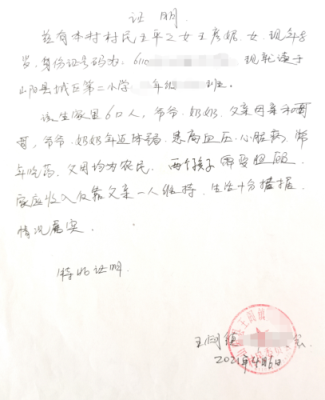 证明
兹有本村村民王年之女王彦妮，女，现年8
岁，身份证号码为：6110 现就读于
山阳县城区第二小学 年级 班。
该生家里6口人，爷爷、奶奶、父亲母亲和哥
哥，爷爷、奶奶年近，患高血压、心脏病，常
年吃药，父母均为农民，两个孩子需要照顾，
家庭收入仅靠父亲一人维持，生活十分拮据，
情况属实
特此证明
王阎
2021年4月6日